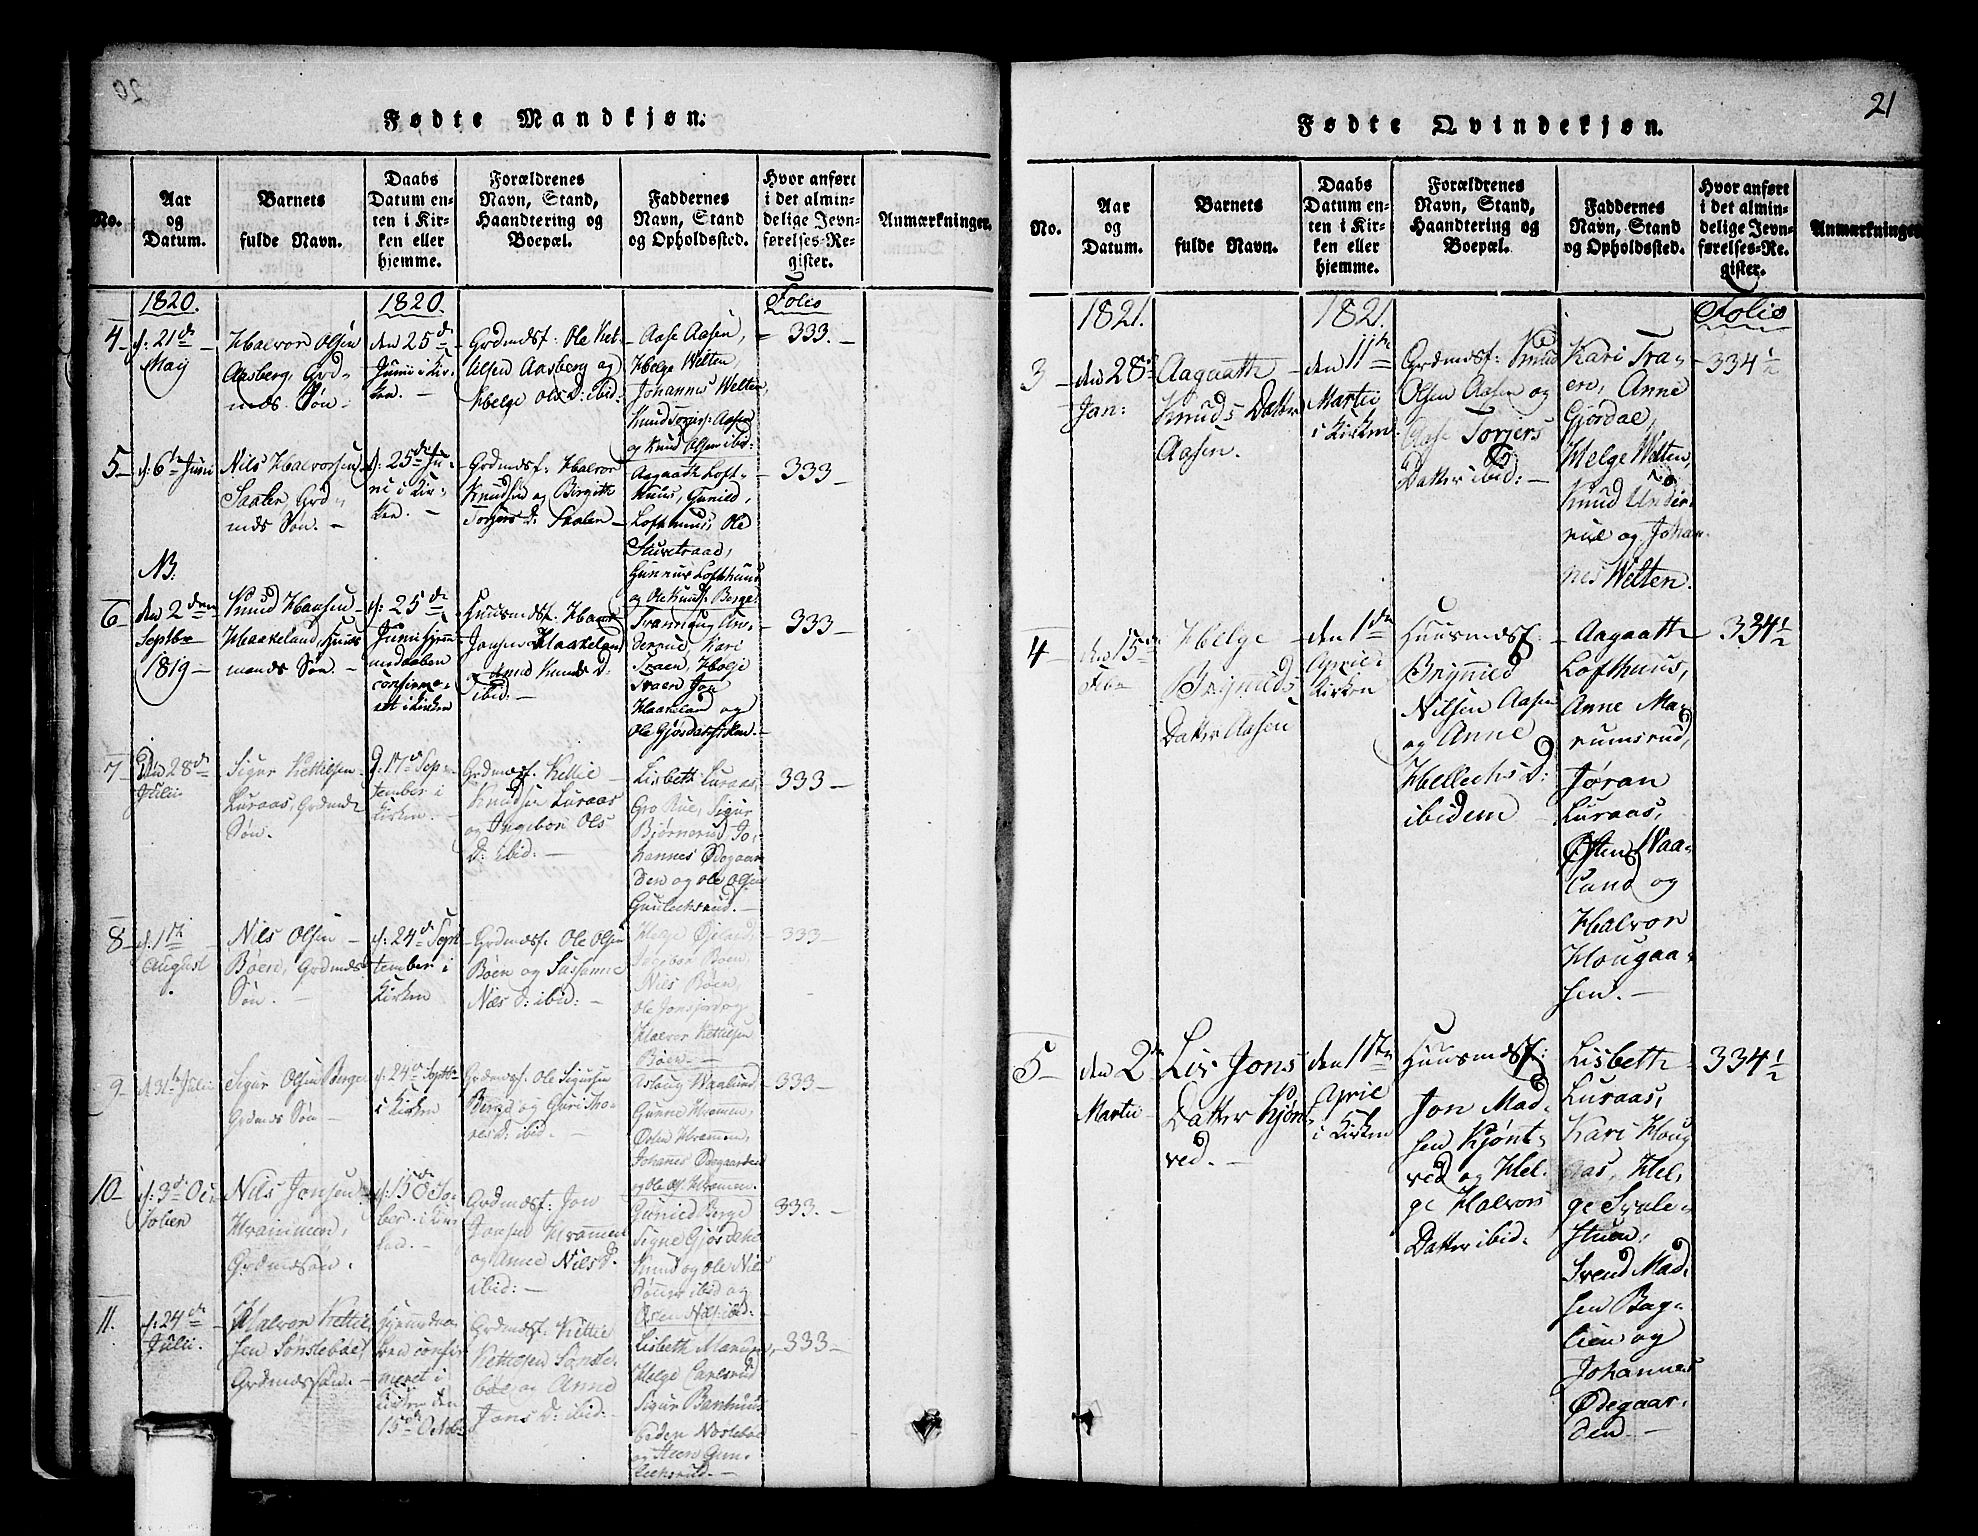 20
Fødte Mandkjøn.
No.
Aar
og
Datum.
Barnets
fulde Navn.
Daabs
Datum en-
ten i Kir-
ken eller
hjemme.
Forældrenes
Navn, Stand,
Haandtering og
Boepæl.
Faddernes
Navn, Stand
og Opholdssted.
Hvor anført
i det almin-
delige Jevn-
førelses-Re-
gister.
Anmærkninger.
1820.
1820.
Folio
4
d: 21de
May
Halvor Olsen
Aasberg, Grd-
mds. Søn.
den 25de
Junii i Kir-
ken.
Grdmdsf. Ole Ket-
tilsen Aasberg og
Helge Ols D: ibid:
Aase Aasen,
Helge Welten
Johannes Welten,
Knud Torjers: Aasen
og Knud Olsen ibid:
333.
5
d: 6te Junii
Nils Halvorsen
Saaler Grd-
mds Søn.
d: 25de Ju-
nii i Kir-
ken.
Grdmdsf: Halvor
Knudsen og Birgitte
Torjers D: Saaler
Aagaath Loft-
huus, Gunild
Lofthuus, Ole
Sturetraad,
Gunnur Lofthuus
og Ole Knuds. Berge
333
NB.
6
den 2den
Septbr
1819
Knud Hansen
Haakeland, Huus-
mands Søn.
d: 25de
Junii Hjem-
medaaben
confirme-
ret i Kirken
Huusmdsf. Hans
Jonsen Haakeland
og Anne Knuds D:
ibid:
Trannoug An-
derrud, Kari
Traen, Halje
Traen Jon
Haakeland og
Ole Gjørdalseiken.
333
7
Den 28de
Julii
Sigur Kettilsen
Luraas, Grdmds
Søn.
d. 17de Sep-
tember i
Kirken.
Grdmdsf. Kettil
Knudsen Luraas
og Ingebor Ols
D: ibid:
Lisbeth Luraas,
Gro Rue, Sigur
Bjørnerud Jo-
hannes Ødegaar-
den og Ole Olsen
Gunleiksrud.
333
8
d: 1ste
August
Nils Olsen
Bøen, Grdmds
Søn.
d: 24de Sep-
tember i
Kirken
Grdmdsf. Ole Olsen
Bøen og Sussanne
Nils D: ibid:
Helge Øiland,
Ingebor Bøen,
Nils Bøen,
Ole Jonsjord og
Halvor Kettilsen
Bøen.
333
9
d. 31te Julii
Sigur Olsen Berge
Grdmds Søn
d: 24de Septbr
i Kirken
Grdmdsf. Ole Sigursen
Berge og Guri Tho-
res D: ibid.
Aslaug Waalund
Gunne Kramen,
Østen Kramen,
Johannes Ødegaarden
og Ole Ols. Kramen.
333
10
d: 3de Oc-
tober
Nils Jonsen
Kraimmen,
Grdmdsøn.
d: 15de Oc-
tober i Kir-
ken.
Grdmdsf: Jon
Jonsen Kramen
og Anne Nils D.
ibid:
Gunild Berge
Signe Gjørdahl
Knud og Ole Nils
Sønner ibid og
Østen Nils: ibid:
333.
11.
d. 24de
Julii.
Halvor Kettil-
sen Sønsteboe,
Grdmdssøn.
Hjemmedaa-
ben confir-
meret i
Kirken den
15de October
Grdmdsf. Kettil
Kettilsen Sønste-
boe og Anne
Jons D: ibid:
Lisbeth Marum,
Helge Carlsrud
Sigur Bakhuus
beden Nøsteboe
og Steen Gun-
leiksrud.
333
21
Fødte Qvindekjøn.
No.
Aar
og
Datum.
Barnets
fulde Navn.
Daabs
Datum en-
ten i Kir-
ken eller
hjemme.
Forældrenes
Navn, Stand,
Haandtering og
Boepæl.
Faddernes
Navn, Stand
og Opholdssted.
Hvor anført
i det almin-
delige Jevn-
førelses-Re-
gister.
Anmærkninger
1821.
1821.
Folio
3
den 28de
Jan:
Aagaath
Knuds Datter
Aasen.
den 11te
Martii
i Kirken
Grdmdsf: Knud
Olsen Aasen og
Aase Torjers
Datter ibid:
Kari Tra-
en, Anne
Gjørdal,
Helge Welten,
Knud Under-
rue og Johan-
nes Welten.
334½
4
den 15de
Febr
Helge
Brynilds
Datter Aasen
den 1ste
April i
Kirken
Huusmdsf.
Brynild
Nilsen Aasen
og Anne
Hellechs D:
ibidem
Aagaath
Lofthuus,
Anne Ma-
rumsrud,
Jøran
Luraas,
Østen Waa-
land og
Halvor
Hougaa-
sen.
334½
5
den 2den
Martii
Liv Jons
Datter Kjønt-
ved.
den 1ste
April
i Kirken
Huusmdsf:
Jon Mad-
sen Kjønt-
ved og Hel-
ge Halvors
Datter ibid:
Lisbeth
Luraas,
Kari Houg-
aas, Hel-
ge Svale-
stuen,
Svend Mad-
sen Bag-
lien og
Johannes
Ødegaar-
den.
334½